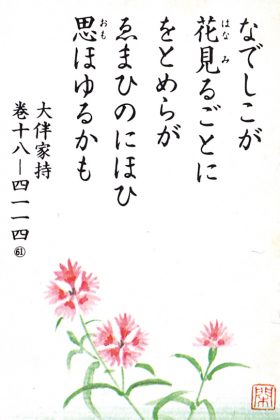 なでしこが
花見るごとに
をとめらが
ゑまひのにほひ
思ほゆるかも
大伴家持
巻十八―四一一四
61